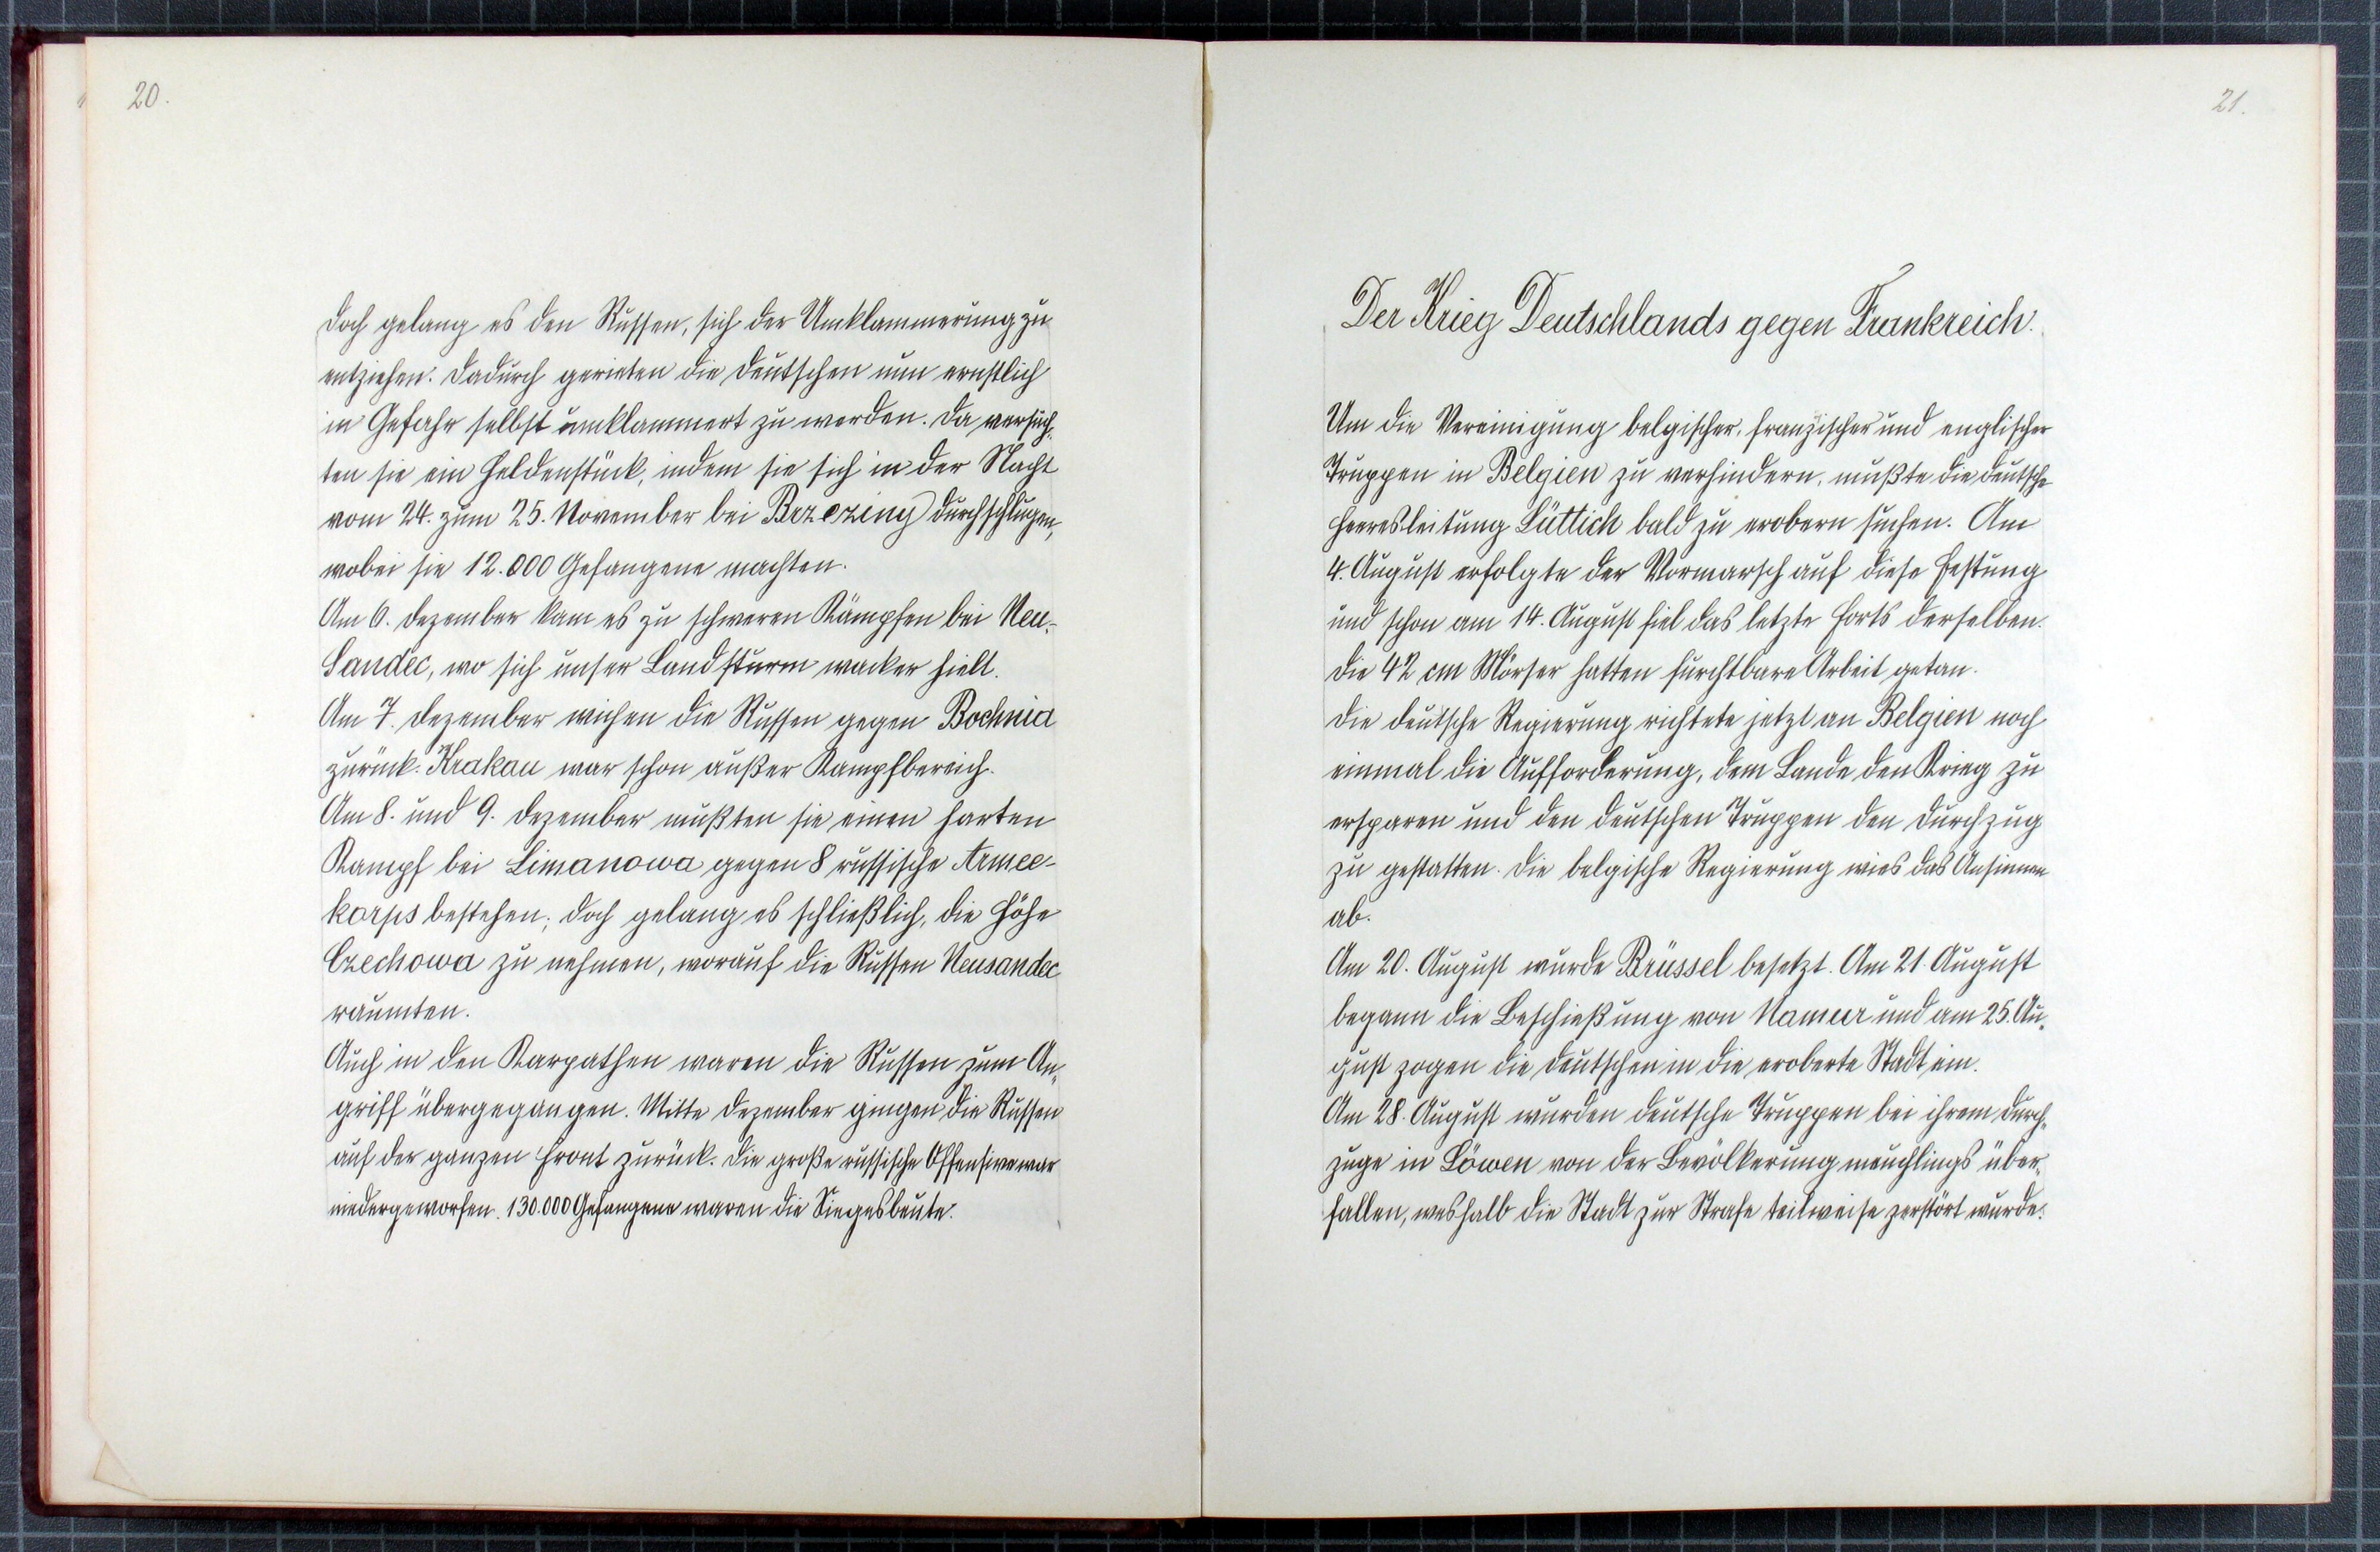 20.
doch gelang es den Russen, sich der Umklammerung zu
entziehen. Dadurch gerieten die Deutschen nun ernstlich
in Gefahr selbst umklammert zu werden. Da versuch-
ten sie ein Heldenstück, indem sie sich in der Nacht
vom 24. zum 25. November bei Brzeziny durchschlugen,
wobei sie 12.000 Gefangene machten.
Am 6. Dezember kam es zu schweren Kämpfen bei Neu-
Sandec, wo sich unser Landsturm wacker hielt.
Am 7. Dezember wichen die Russen gegen Bochnia
zurück. Krakau war schon außer Kampfbereich.
Am 8. und 9. Dezember mußten sie einen harten
Kampf bei Limanowa gegen 8 russische Armee-
korps bestehen; doch gelang es schließlich, die Höhe
Czechowa zu nehmen, worauf die Russen Neusandec
räumten.
Auch in den Karpathen waren die Russen zum An-
griff übergegangen. Mitte Dezember gingen die Russen
auf der ganzen Front zurück. Die große russische Offensive war
niedergeworfen. 130.000 Gefangene waren die Siegesbeute.
21.
Der Krieg Deutschlands gegen Frankreich.
Um die Vereinigung belgischer, franzischer und englischer
Truppen in Belgien zu verhindern, mußte die deutsche
Heeresleitung Lüttich bald zu erobern suchen. Am
4. August erfolgte der Vormarsch auf diese Festung
und schon am 14. August fiel das letzte Forts derselben.
Die 42 cm Mörser hatten furchtbare Arbeit getan.
Die deutsche Regierung richtete jetzt an Belgien noch
einmal die Aufforderung, dem Lande den Krieg zu
ersparen und den deutschen Truppen den Durchzug
zu gestatten. Die belgische Regierung wies das Ansinnen
ab.
Am 20. August wurde Brüssel besetzt. Am 21. August
begann die Beschießung von Namur und am 25. Au-
gust zogen die Deutschen in die eroberte Stadt ein.
Am 28. August wurden deutsche Truppen bei ihrem Durch-
zuge in Löwen von der Bevölkerung meuchlings über-
fallen, weshalb die Stadt zur Strafe teilweise zerstört wurde.